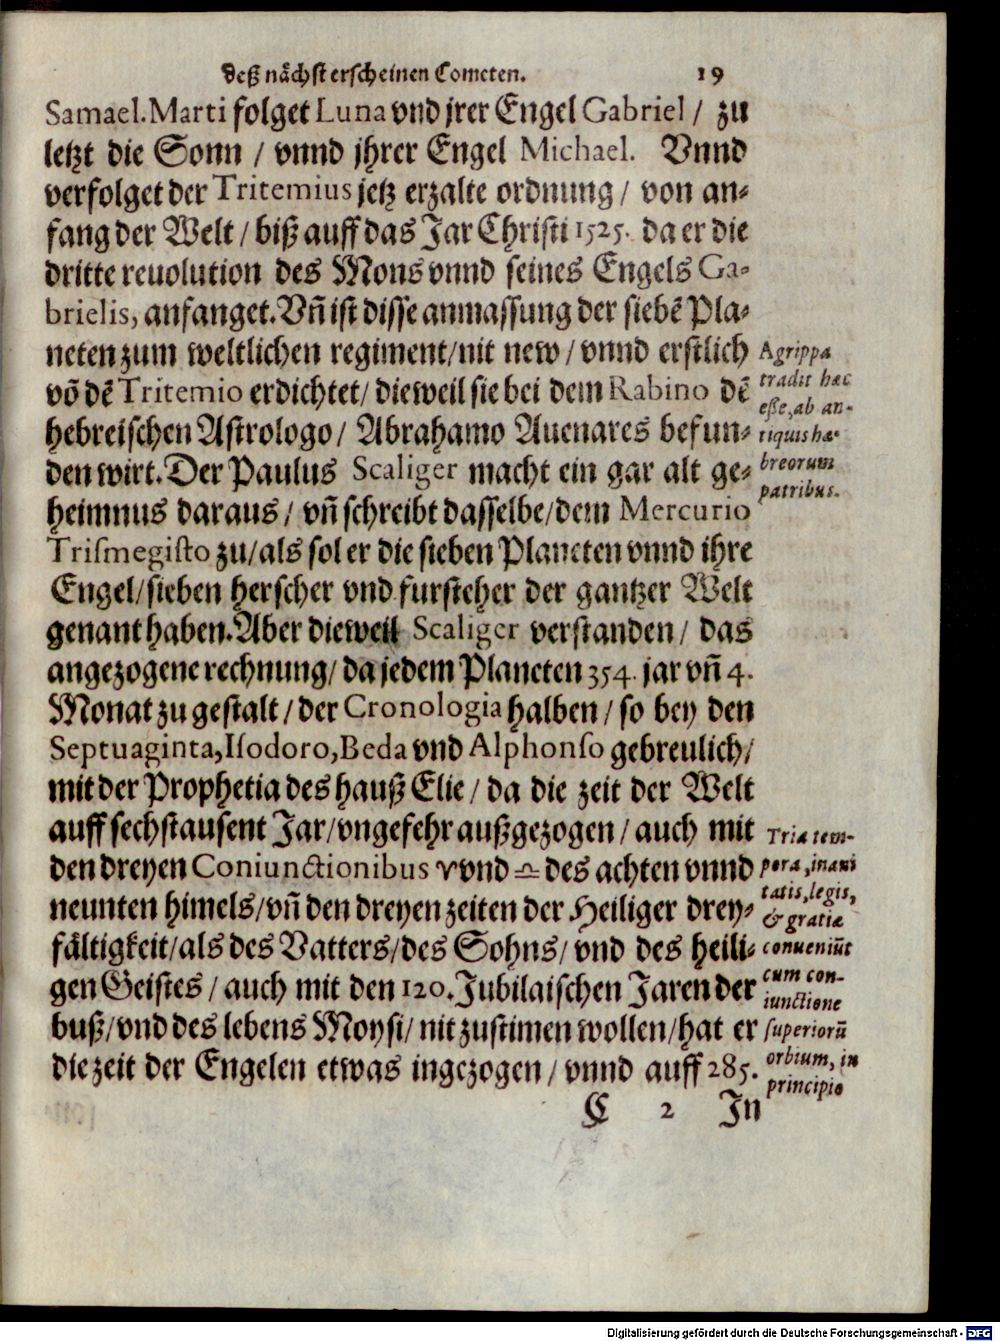 deß nächst erscheinen Cometen. 19
Samael. Marti folget Luna vnd jrer Engel Gabriel / zu
letzt die Sonn / vnnd jhrer Engel Michael. Vnnd
verfolget der Tritemius jetz erzalte ordnung / von an-
fang der Welt / biß auff das Jar Christi 1525. da er die
dritte reuolution des Mons vnnd seines Engels Ga-
brielis, anfanget. Vñ ist disse anmassung der siebẽ Pla-
neten zum weltlichen regiment / nit new / vnnd erstlich
võ dẽ Tritemio erdichtet / dieweil sie bei dem Rabino dẽ
hebreischen Astrologo / Abrahamo Auenares befun-
den wirt. Der Paulus Scaliger macht ein gar alt ge-
heimnus daraus / vñ schreibt dasselbe / dem Mercurio
Trismegisto zu / als sol er die sieben Planeten vnnd ihre
Engel / sieben herscher vnd fursteher der gantzer Welt
genant haben. Aber dieweil Scaliger verstanden / das
angezogene rechnung / da jedem Planeten 354. jar vñ 4.
Monat zu gestalt / der Cronologia halben / so bey den
Septuaginta, Isodoro, Beda vnd Alphonso gebreulich /
mit der Prophetia des hauß Elie / da die zeit der Welt
auff sechstausent Jar / vngefehr außgezogen / auch mit
den dreyen Coniunctionibus ♈ vnd ♎ des achten vnnd
neunten himels / vñ den dreyen zeiten der Heiliger drey-
fältigkeit / als des Vatters / des Sohns / vnd des heili-
gen Geistes / auch mit den 120. Jubilaischen Jaren der
buß / vnd des lebens Moysi / nit zustimen wollen / hat er
die zeit der Engelen etwas ingezogen / vnnd auff 285.
C 2 In
Agrippa
tradit hæc
eße, ab an-
tiquis hæ-
breorum
patribus.
Tria tem-
pora, inani
tatis, legis,
& gratiæ
conueniũt
cum con-
iunctione
superiorũ
orbium, in
principio
Digitalisierung gefördert durch die Deutsche Forschungsgemeinschaft - DFG